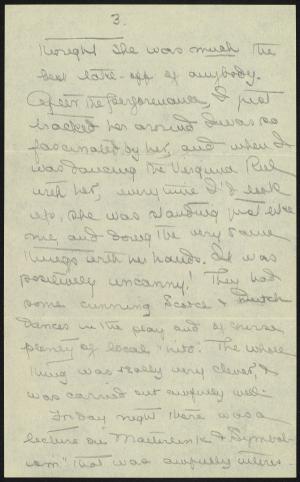 3.
thought she was much the
best take-off of anybody.
After the performance, I just
tracked her around I was so
fascinated by her, and when I
was dancing the Virginia Reel
with her, every time I'd look
up, she was standing just like
me, and doing the very same
things with her hands. It was
positively uncanny! They had
some cunning Scotch & Dutch
dances in the play and of course
plenty of local "hits". The whole
thing was really very clever, &
was carried out awfully well.
Friday night there was a
lecture on "Maeterlinck & Symbol-
ism" that was awfully interes-